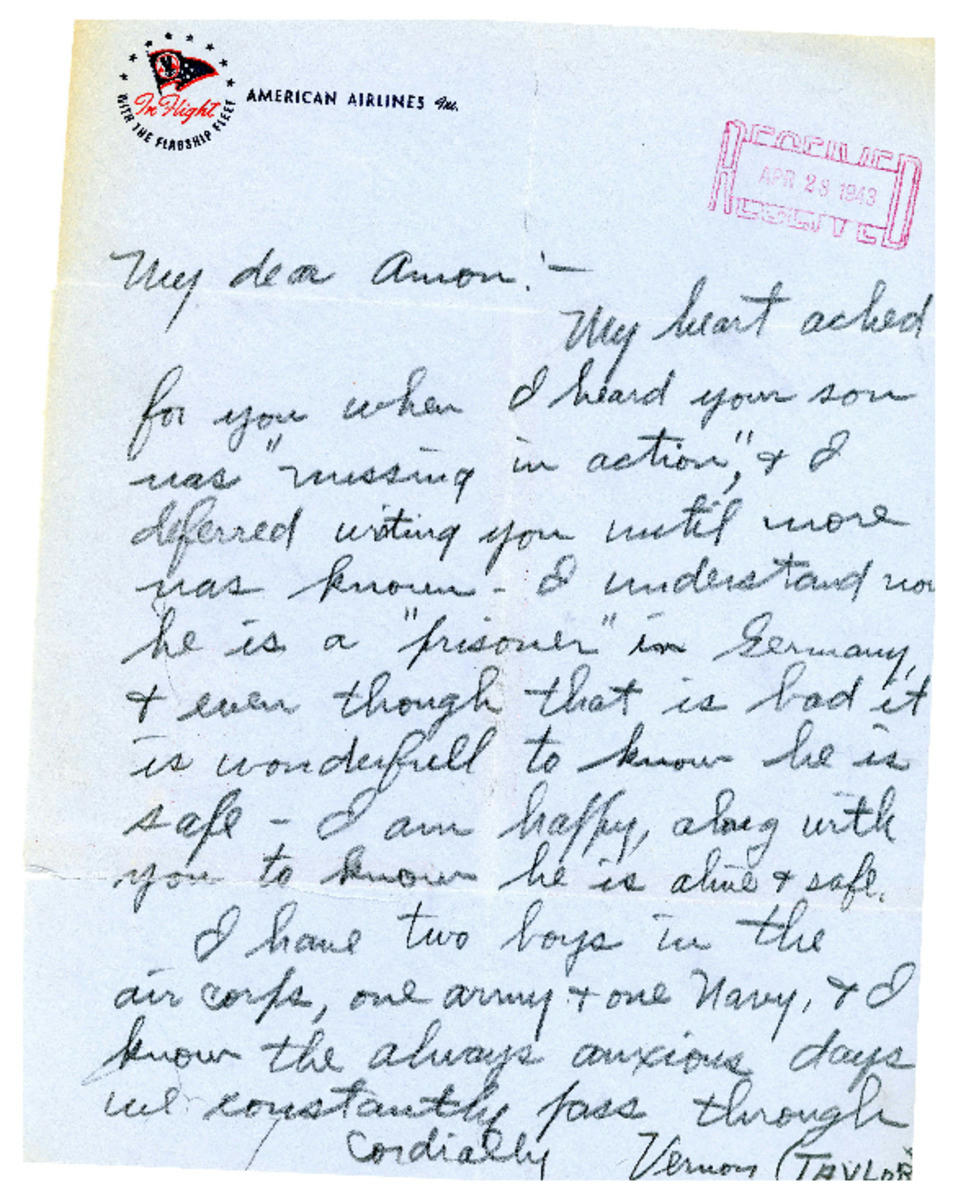 In Flight
WITH THE FLAGSHIP FLEET
AMERICAN AIRLINES Inc.
RECEIVED
APR 28 1943
RECEIVED
My dear Amon:—
My heart ached
for you when I heard your son
was "missing in action," & I
deferred writing you until more
was known - I understand now
he is a "prisoner" in Germany,
& even though that is bad it
is wonderfull to know he is
safe - I am happy, along with
you to know he is alive & safe.
I have two boys in the
air corps, one army & one Navy, & I
know the always anxious days
we constantly pass through
Cordially Vernon (TAYLOR